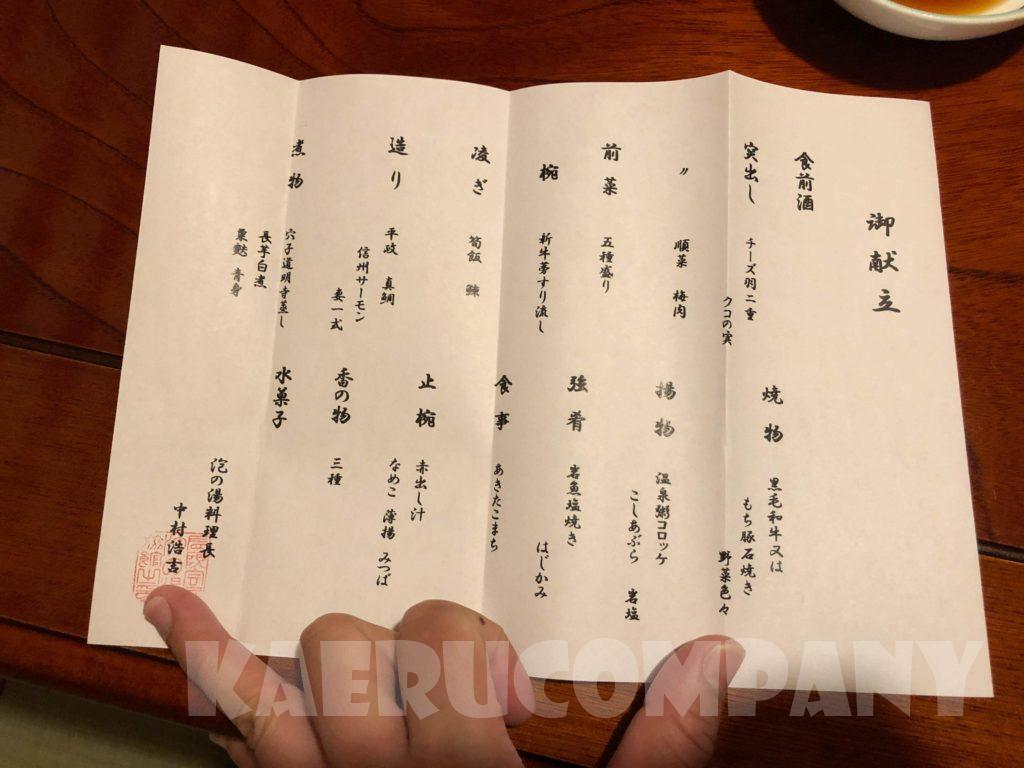 御献立
食前酒
突出し チーズ羽二重
クコの実
〃 順菜 梅肉
前菜 五種盛り
椀 新牛蒡すり流し
凌ぎ 筍飯
造り 平政 真鯛
信州サーモン
妻一式
煮物 穴子道明寺蒸し
長芋白煮
粟麩 青身
焼物 黒毛和牛又は
もち豚石焼き
野菜色々
揚物 温泉粥コロッケ
こしあぶら 岩塩
強肴 岩魚塩焼き
はじかみ
食事 あきたこまち
止椀 赤出し汁
なめこ 薄揚 みつば
香の物 三種
水菓子
泡の湯料理長
中村浩吉
KAERUCOMPANY